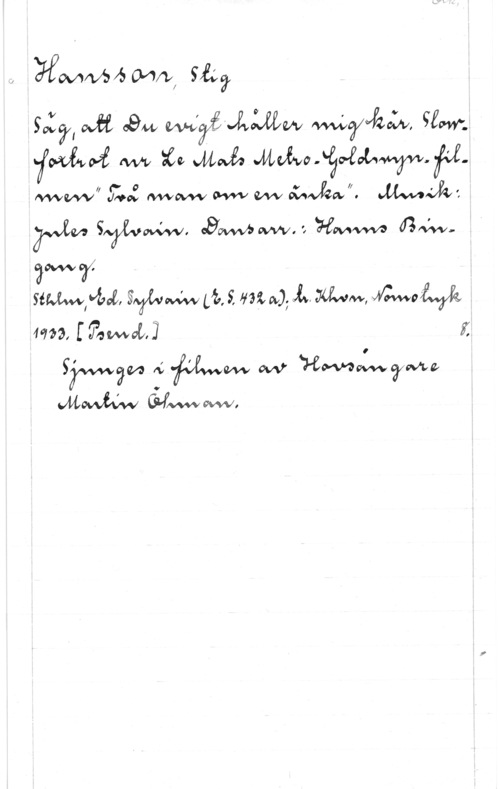 Hansson, Stig
Säg, att Du evigt håller mig kär. Slow-
foxtrot ur Le Mats Metro-Goldwyn-fil-
men "Två man om en änka". Musik:
Jules Sylvain. Dansarr.: Hanns Bin-
gang.
Sthlm, Ed. Sylvain (E. S. 432 a); tr. Khvn, Nomotryk
1933. [Pseud.] 8.
Sjunges i filmen av Hovsångare
Martin Öhman.